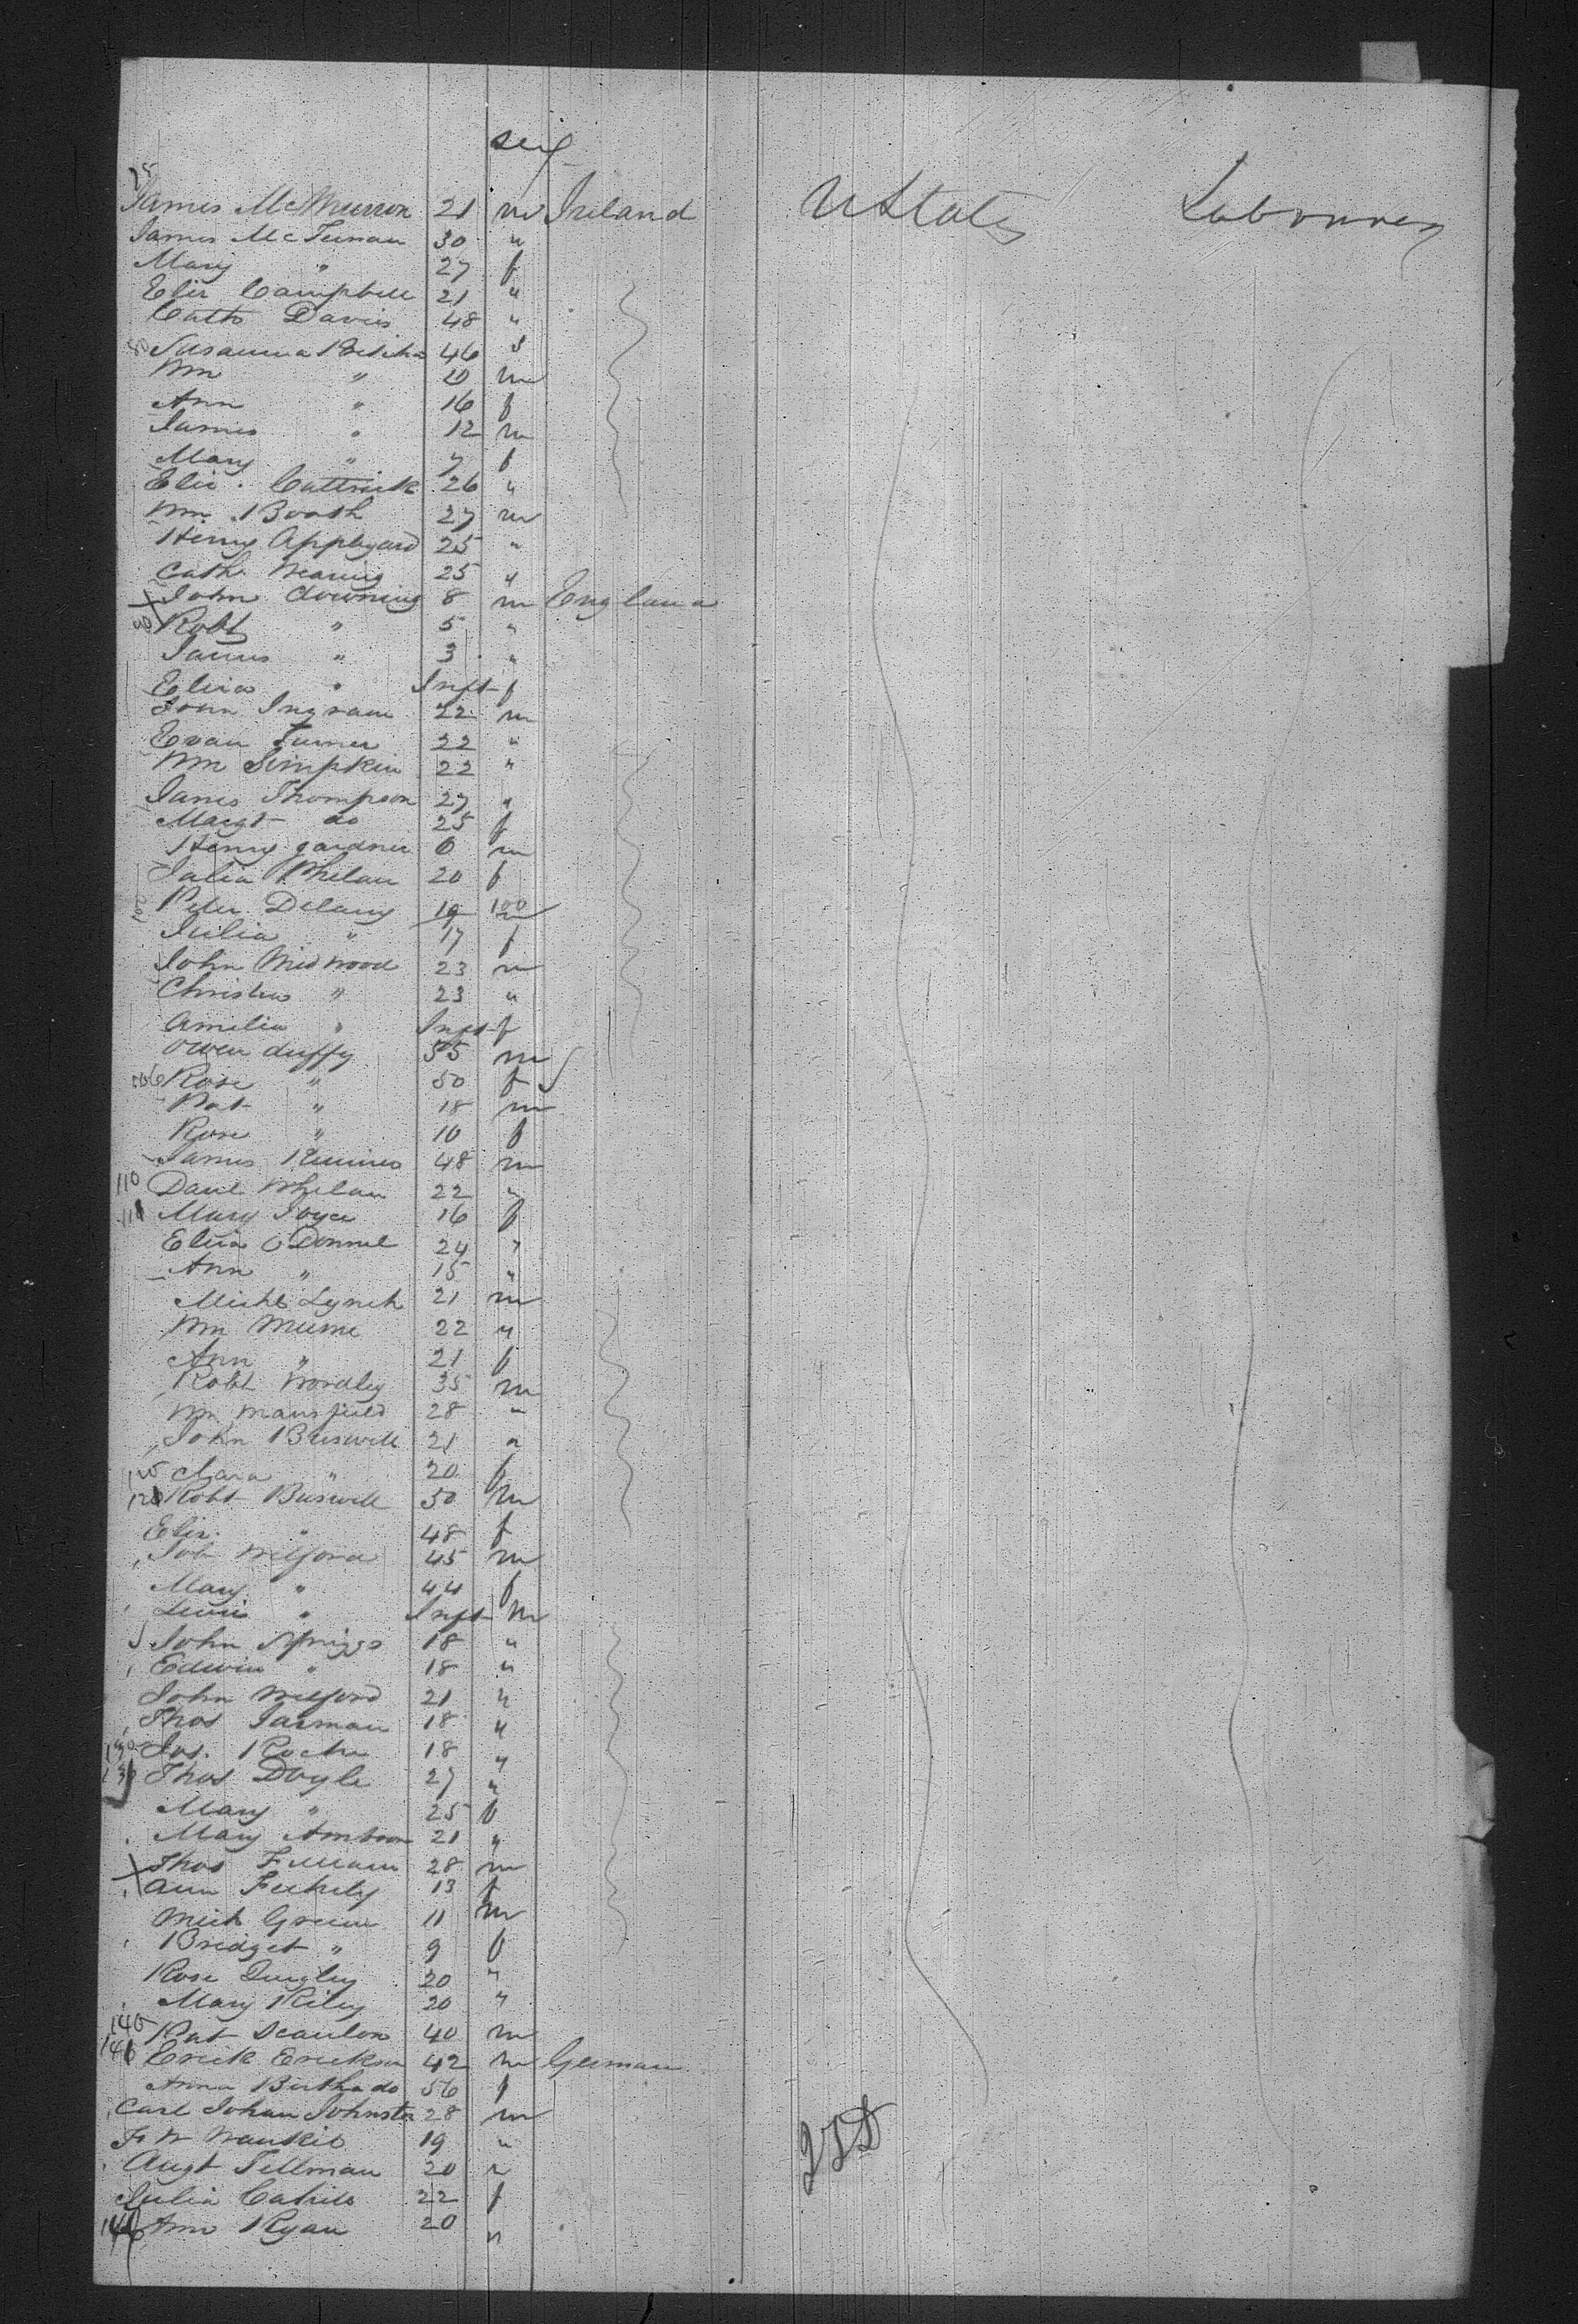 James McMurron 21 m Ireland U States Labourers
James McTernan 30 "
Mary " 27 f
Eliz Campbell 21 "
Cath Davies 48 "
Susanna 46
Wm " 20 m
Ann " 16 f
James " 12 m
Mary " 7 f
Eliz. Cattrick 26 "
Wm Booth 27 m
Henry Appleyard 25 "
Cath 25 "
John Downing 8 m England
90 Robt " 5 "
James " 3 "
Eliza " Inft f
John Ingram 22 m
Evan Turner 22 "
Wm Simpkin 22 "
James Thompson 27 "
Margt do 25 f
Henry Gardner 6 m
Julia Whelan 20 f
Peter Delany 19 100 m
Julia " 17 f
John Midwood 23 m
Christns " 23 "
Amelia " Inft f
Owen Duffy 55 m
Rose " 50 f
Pat " 18 m
Rose " 10 f
James 48 m
110 Danl Whelan 22 "
111 Mary Joyce 16 f
Eliza O Donnel 24 "
Ann " 15 "
Michl Lynch 21 m
Wm 22 "
Ann " 21 f
Robt Wordley 35 m
Wm Mansfield 28 "
John Buswell 21 "
Clara " 20 f
Robt Buswell 50 m
Eliz. " 48 f
Job Welford 45 m
Mary " 44 f
Lewis " Inft m
John Spriggs 18 "
Edwin " 18 "
John Welford 21 "
Thos Jarman 18 "
Jos. Roche 18 "
Thos Doyle 27 "
Mary " 25 f
Mary 21 "
Thos 28 m
Ann 13 f
Mich Green 11 m
Bridget " 9 f
Rose Quigley 20 "
Mary Riley 20 "
140 Pat Scanlon 40 m
141 Erick Erickson 42 m German
Anna Birtha do 56 f
Carl Johan 28 m
F W 19 "
Augt Tellman 20 "
Julia Cahill 22 f
Ann Ryan 20 "